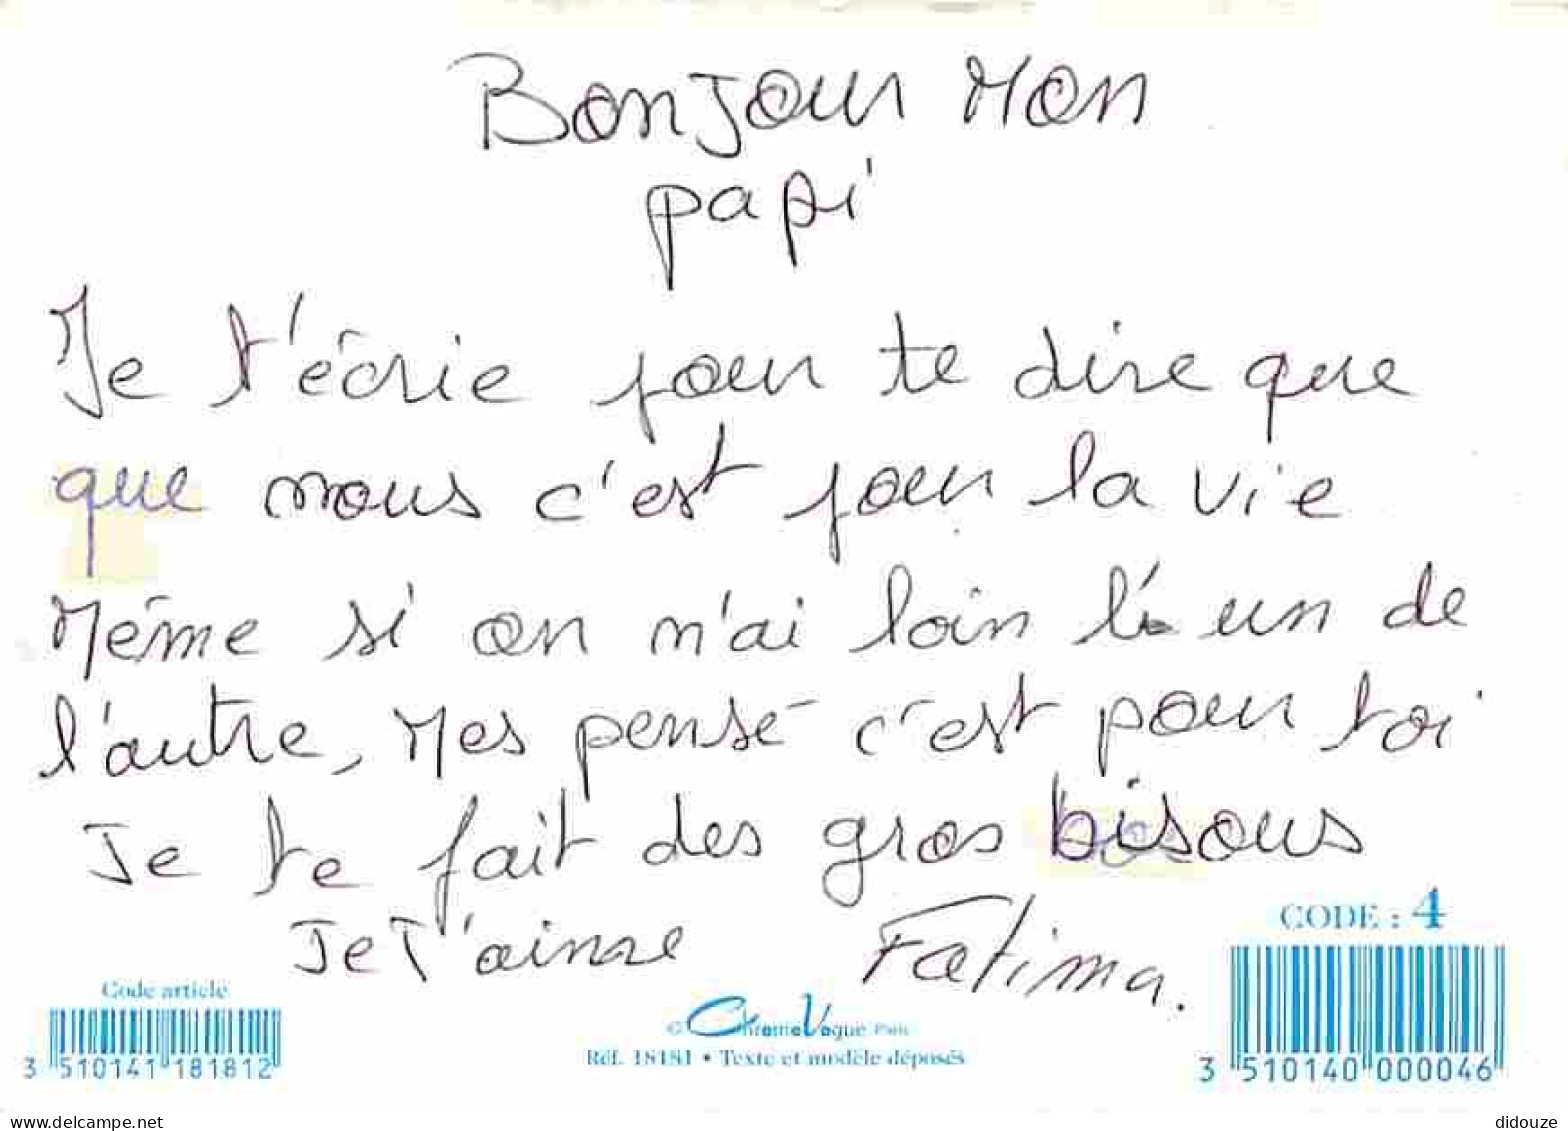 Bonjour Mon
papi
Je t'écrie pour te dire que
que nous c'est pour la vie
Même si on n'ai loin l' un de
l'autre, Mes pensé c'est pour toi
Je te fait des gros bisous
Je T'aime Fatima.
CODE : 4
Code article
3 510141 181812
© ChromoVogue Paris
Réf. 18181 • Texte et modèle déposés
3 510140 000046
www.delcampe.net
didouze